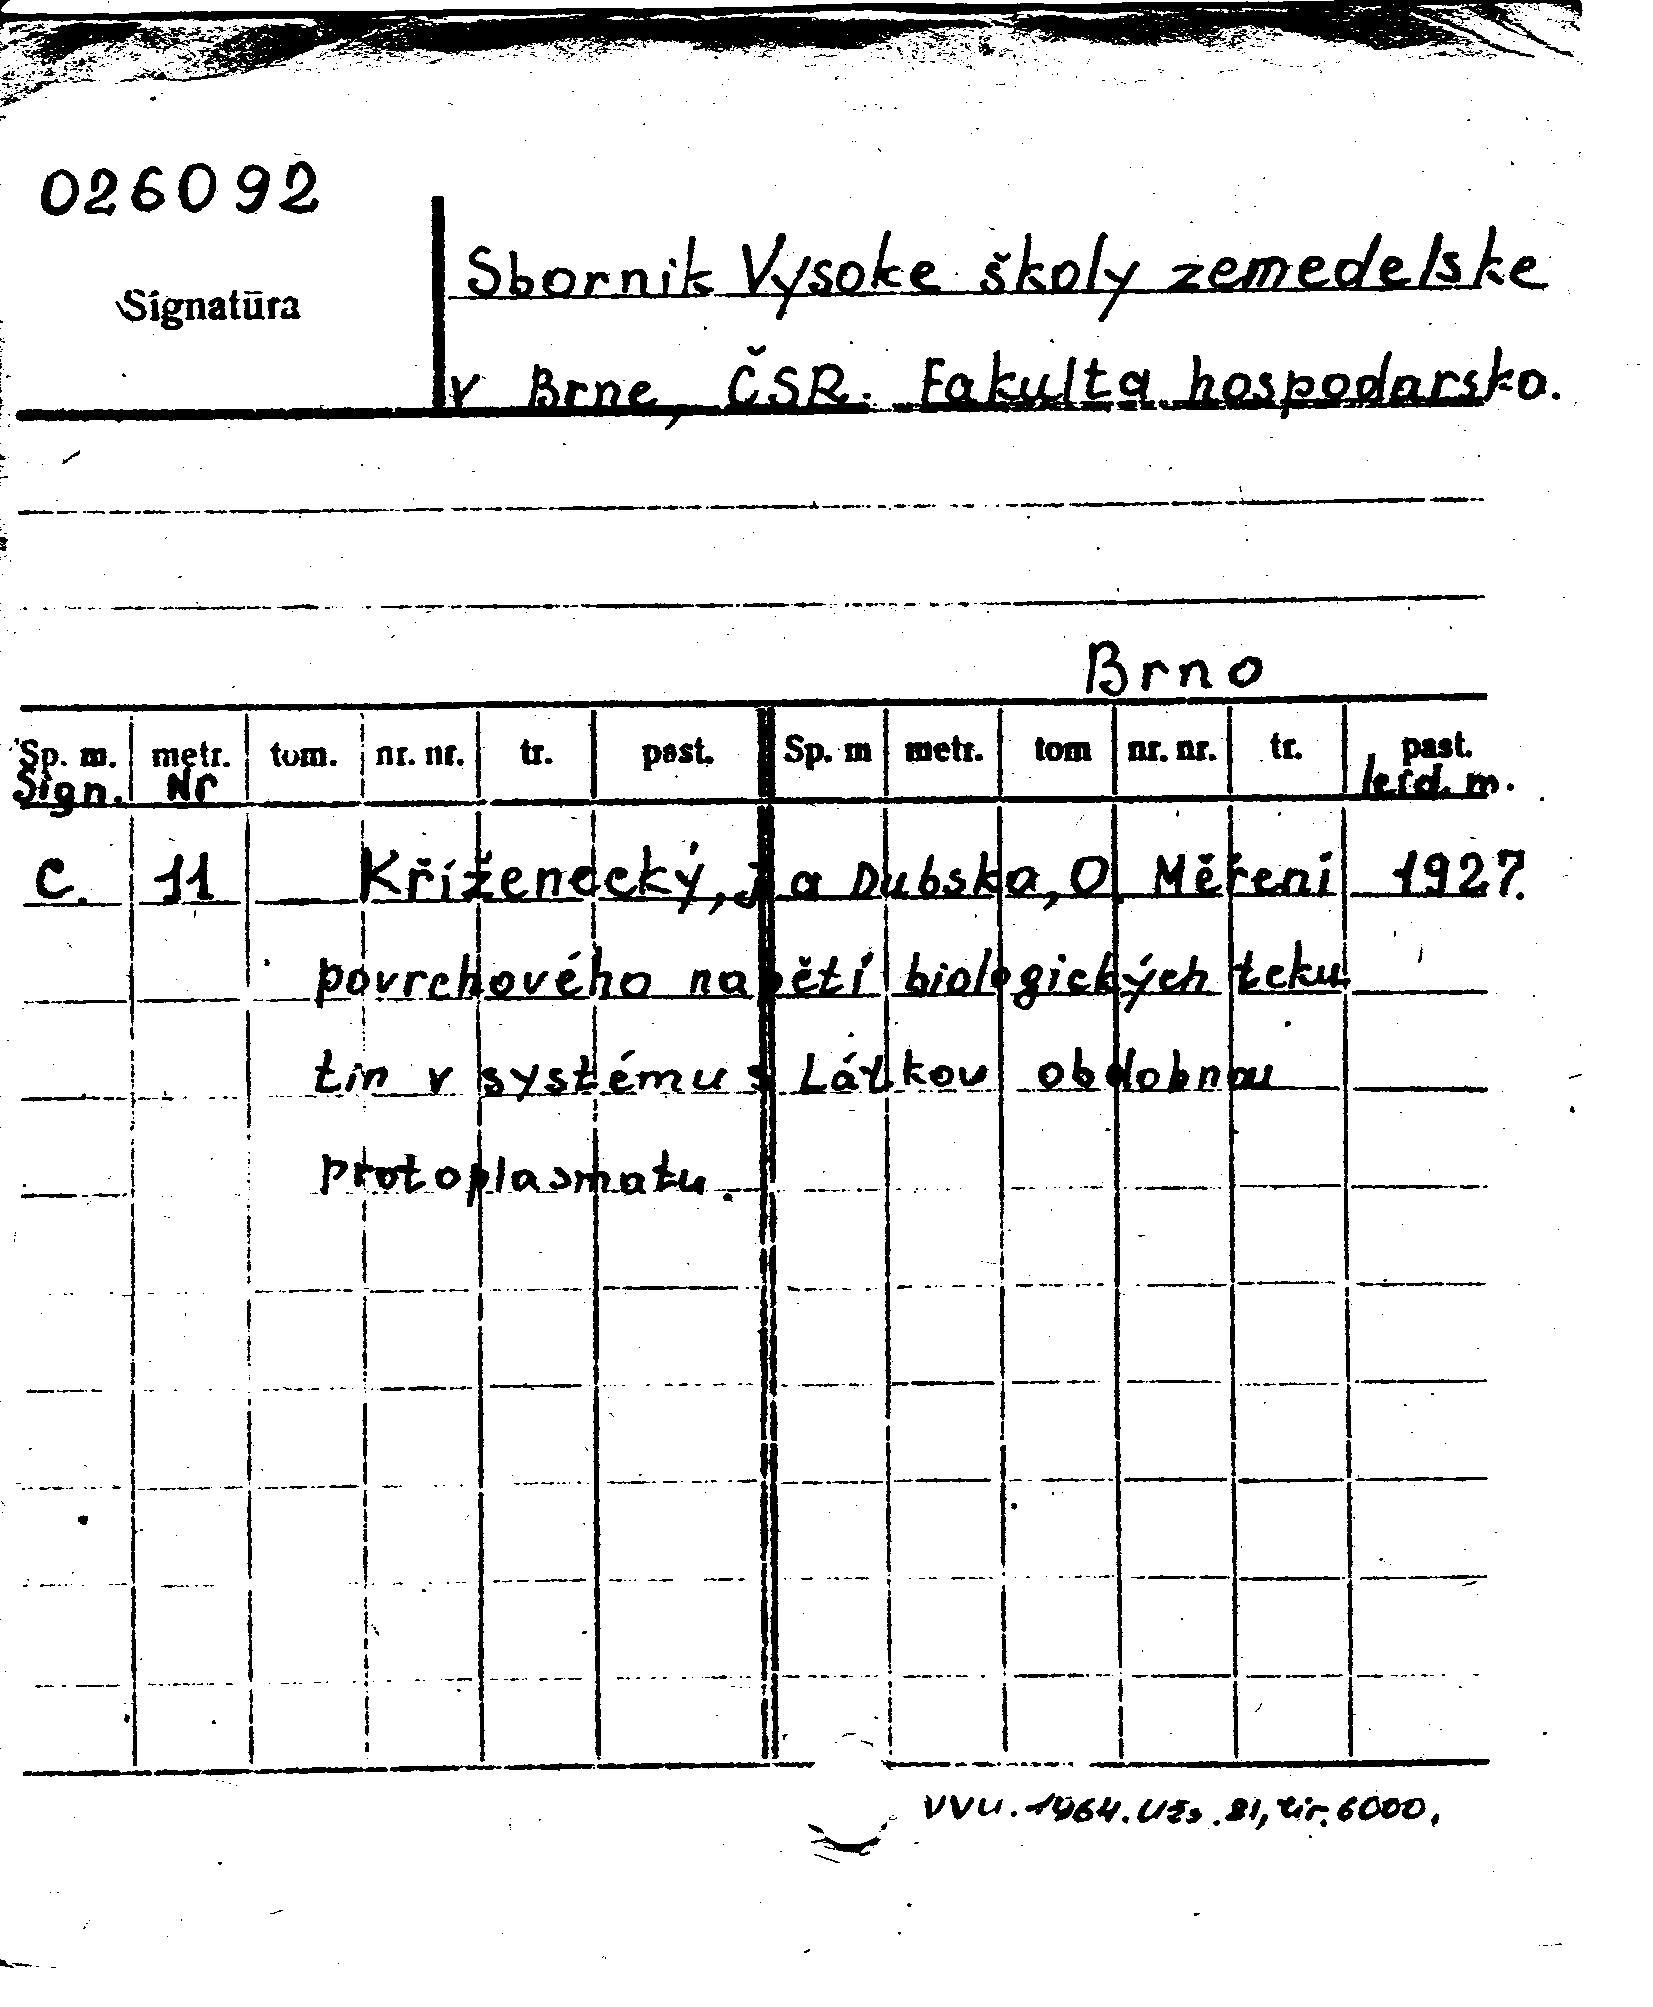 026092
Signatūra
Sbornik Vysoke školy zemedelske
v Brne, ČSR. Fakulta hospodarska.
Brno
Sp. m. metr. tom. nr. nr. tr. past. Sp. m metr. tom nr. nr. tr. past.
Sign. Nr leid. m.
C. 11 Kříženecký, J a Dubska, O. Měřeni 1927.
povrchového napětí biologických teku
tin v systému s Látkou obdobnou
protoplasmatu.
VVU. 1964. Užs. 81, tir. 6000.